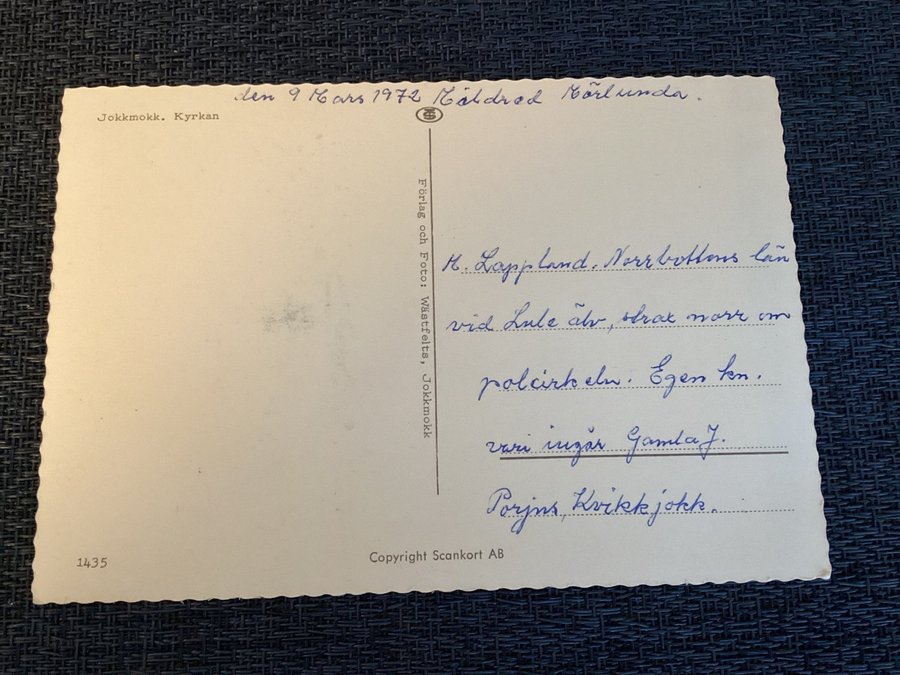 den 9 Mars 1972 Mildred Mörlunda.
Jokkmokk. Kyrkan
Förlag och Foto: Wästfelts, Jokkmokk
M. Lappland. Norrbottens län
vid Lule älv, strax norr om
polcirkeln. Egen kn.
vari ingår Gamla J.
Porjus, Kvikkjokk.
1435
Copyright Scankort AB